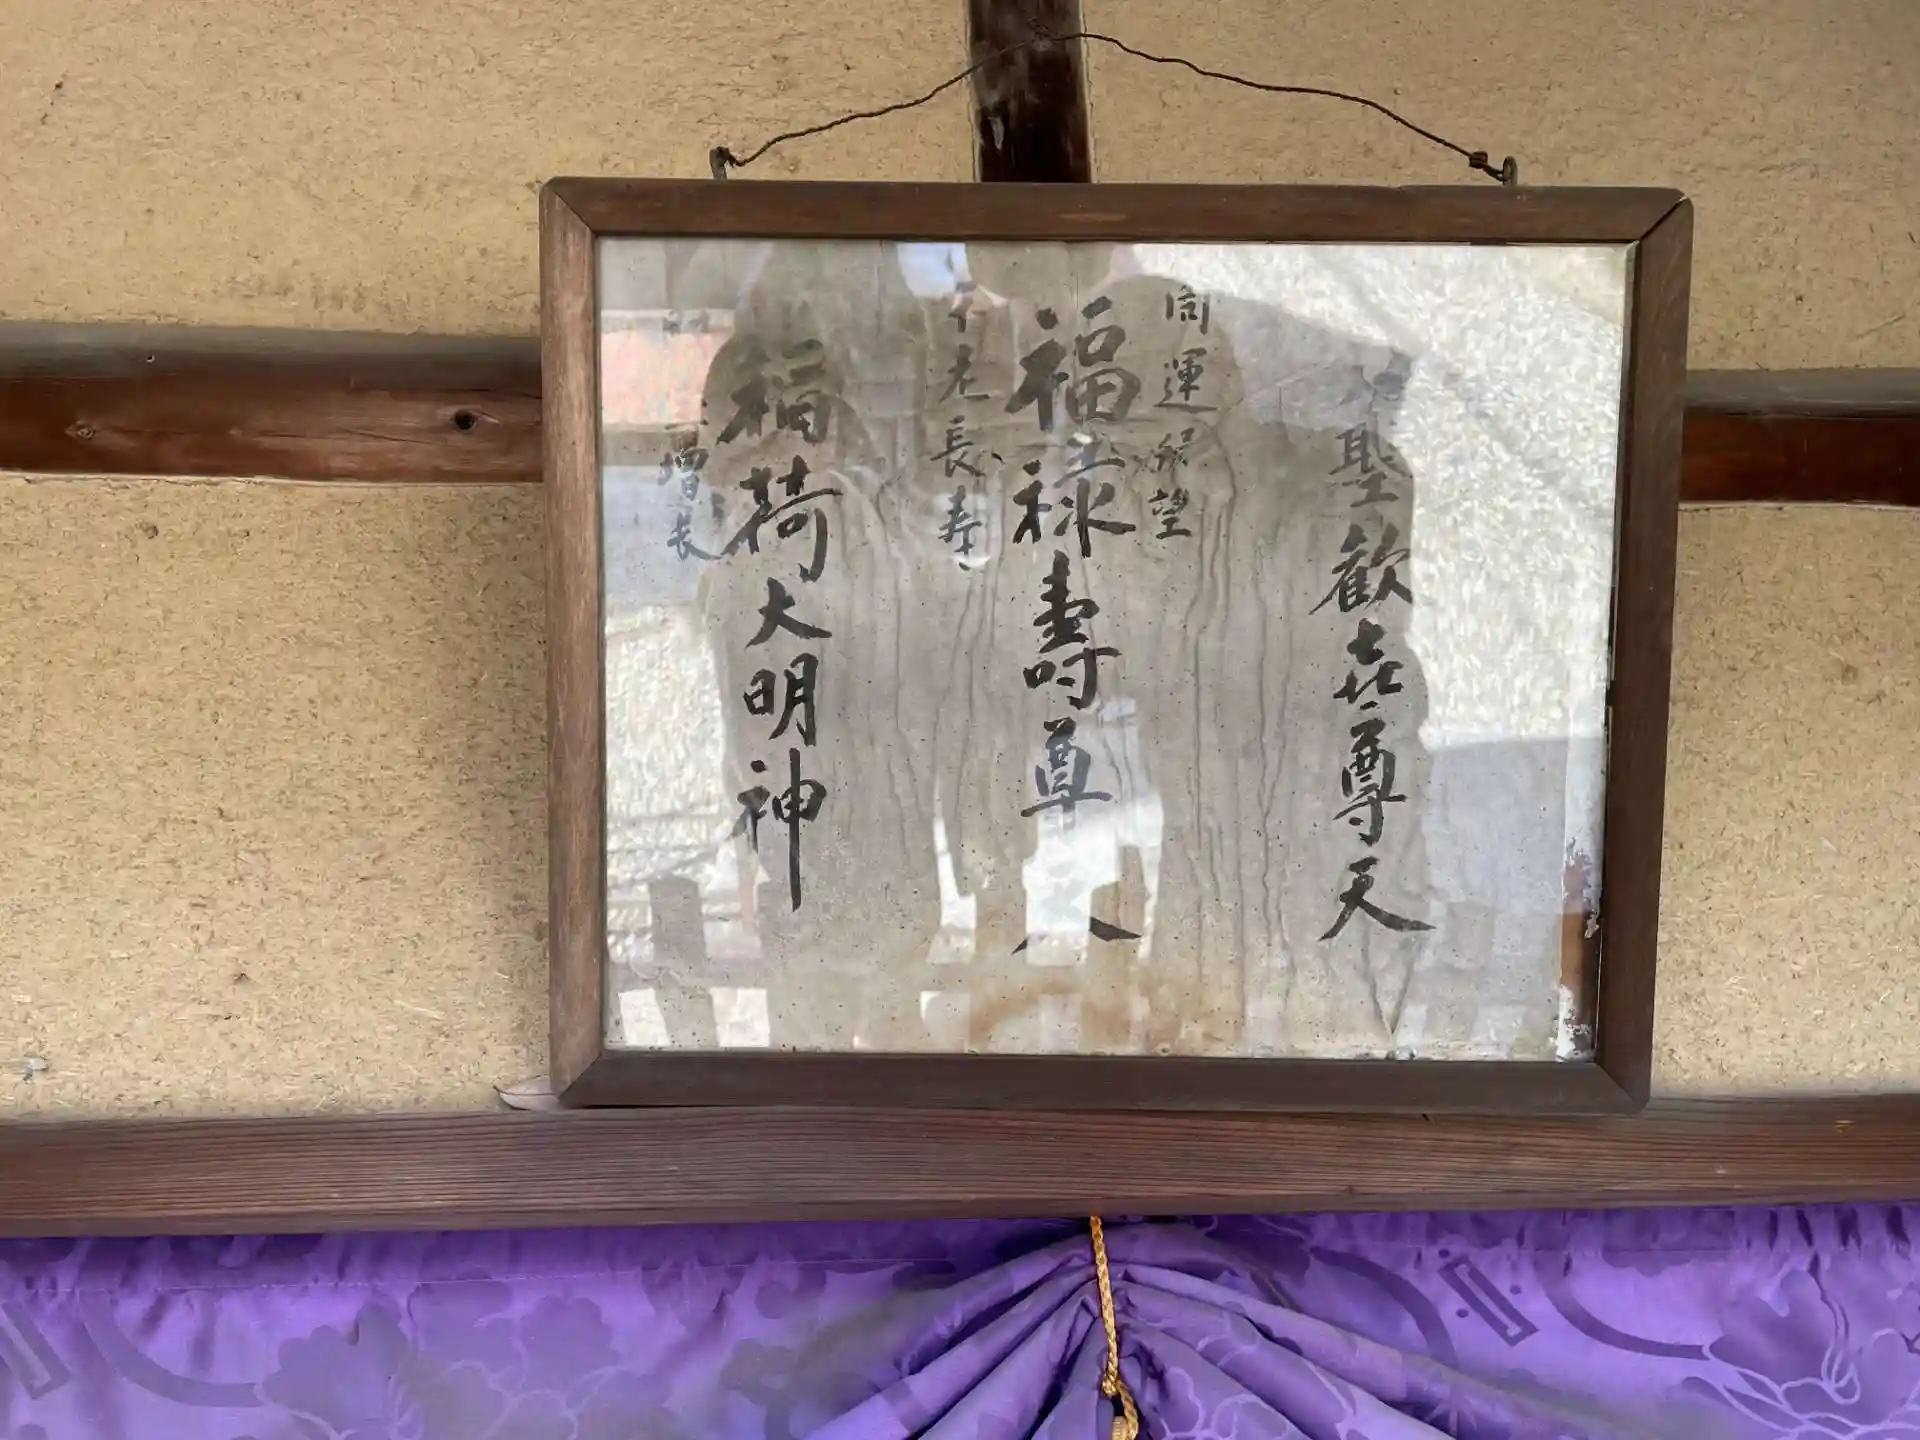 大聖歓喜尊天
開運
望
福禄壽尊天
不老長寿
稲荷大明神
増長